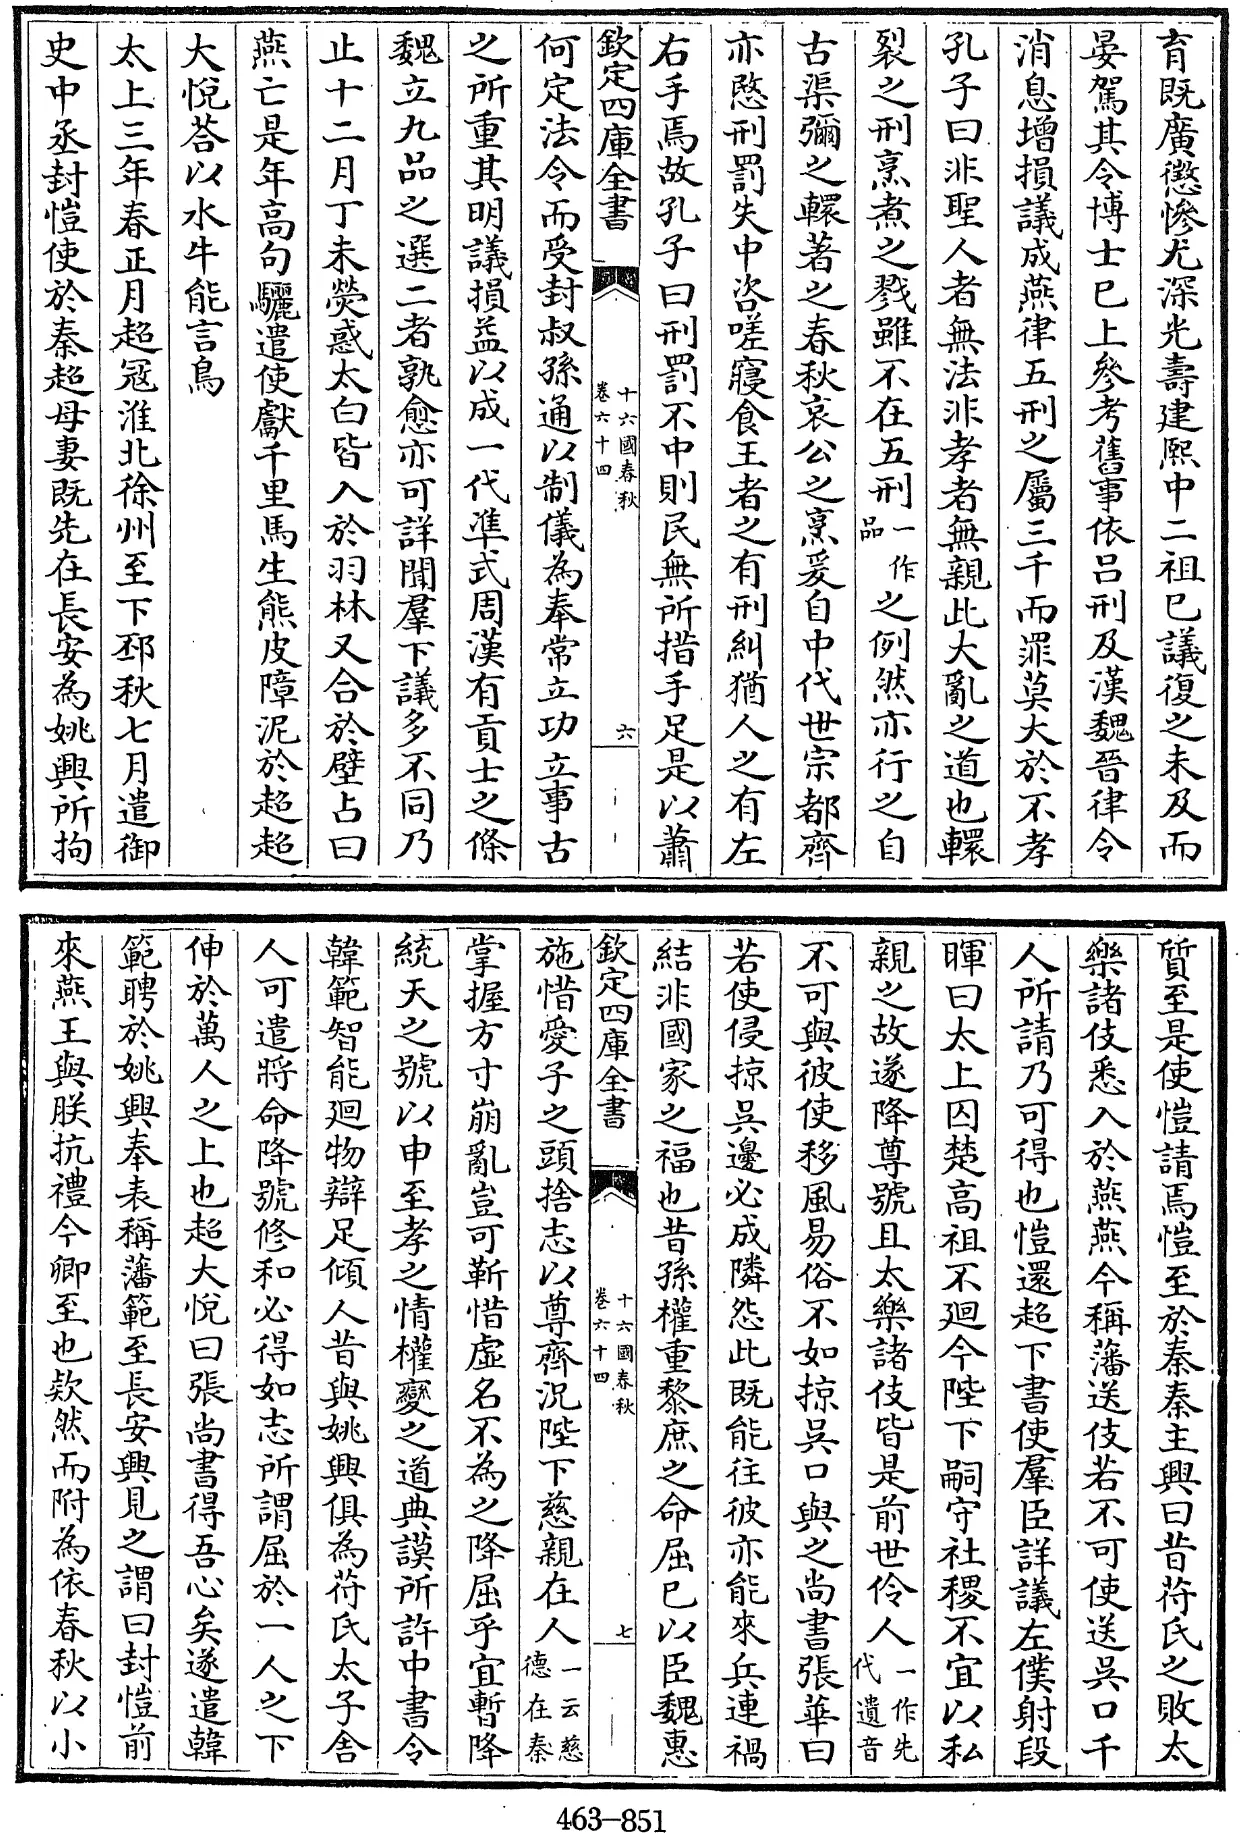 育既廣懲慘尤深光壽建熙中二祖已議復之未及而
晏駕其令博士已上參考舊事依呂刑及漢魏晉律令
消息增損議成燕律五刑之屬三千而罪莫大於不孝
孔子曰非聖人者無法非孝者無親此大亂之道也轘
裂之刑烹煮之戮雖不在五刑一作品之例然亦行之自
古渠彌之轘著之春秋哀公之烹爰自中代世宗都齊
亦愍刑罰失中咨嗟寢食王者之有刑糾猶人之有左
右手焉故孔子曰刑罰不中則民無所措手足是以蕭
欽定四庫全書
十六國春秋
卷六十四
六
何定法令而受封叔孫通以制儀為奉常立功立事古
之所重其明議損益以成一代準式周漢有貢士之條
魏立九品之選二者孰愈亦可詳聞羣下議多不同乃
止十二月丁未熒惑太白皆入於羽林又合於壁占曰
燕亡是年高句驪遣使獻千里馬生熊皮障泥於超超
大悅荅以水牛能言鳥
太上三年春正月超冦淮北徐州至下邳秋七月遣御
史中丞封愷使於秦超母妻既先在長安為姚興所拘
質至是使愷請焉愷至於秦秦主興曰昔苻氏之敗太
樂諸伎悉入於燕燕今稱藩送伎若不可使送吳口千
人所請乃可得也愷還超下書使羣臣詳議左僕射段
暉曰太上囚楚高祖不廻今陛下嗣守社稷不宜以私
親之故遂降尊號且太樂諸伎皆是前世伶人一作先代遺音
不可與彼使移風易俗不如掠吳口與之尚書張華曰
若使侵掠吳邊必成隣怨此既能往彼亦能來兵連禍
結非國家之福也昔孫權重黎庶之命屈已以臣魏惠
欽定四庫全書
十六國春秋
卷六十四
七
施惜愛子之頭捨志以尊齊況陛下慈親在人一云慈德在秦
掌握方寸崩亂豈可靳惜虛名不為之降屈乎宜暫降
統天之號以申至孝之情權變之道典謨所許中書令
韓範智能廻物辯足傾人昔與姚興俱為苻氏太子舍
人可遣將命降號修和必得如志所謂屈於一人之下
伸於萬人之上也超大悅曰張尚書得吾心矣遂遣韓
範聘於姚興奉表稱藩範至長安興見之謂曰封愷前
來燕王與朕抗禮今卿至也欵然而附為依春秋以小
463-851